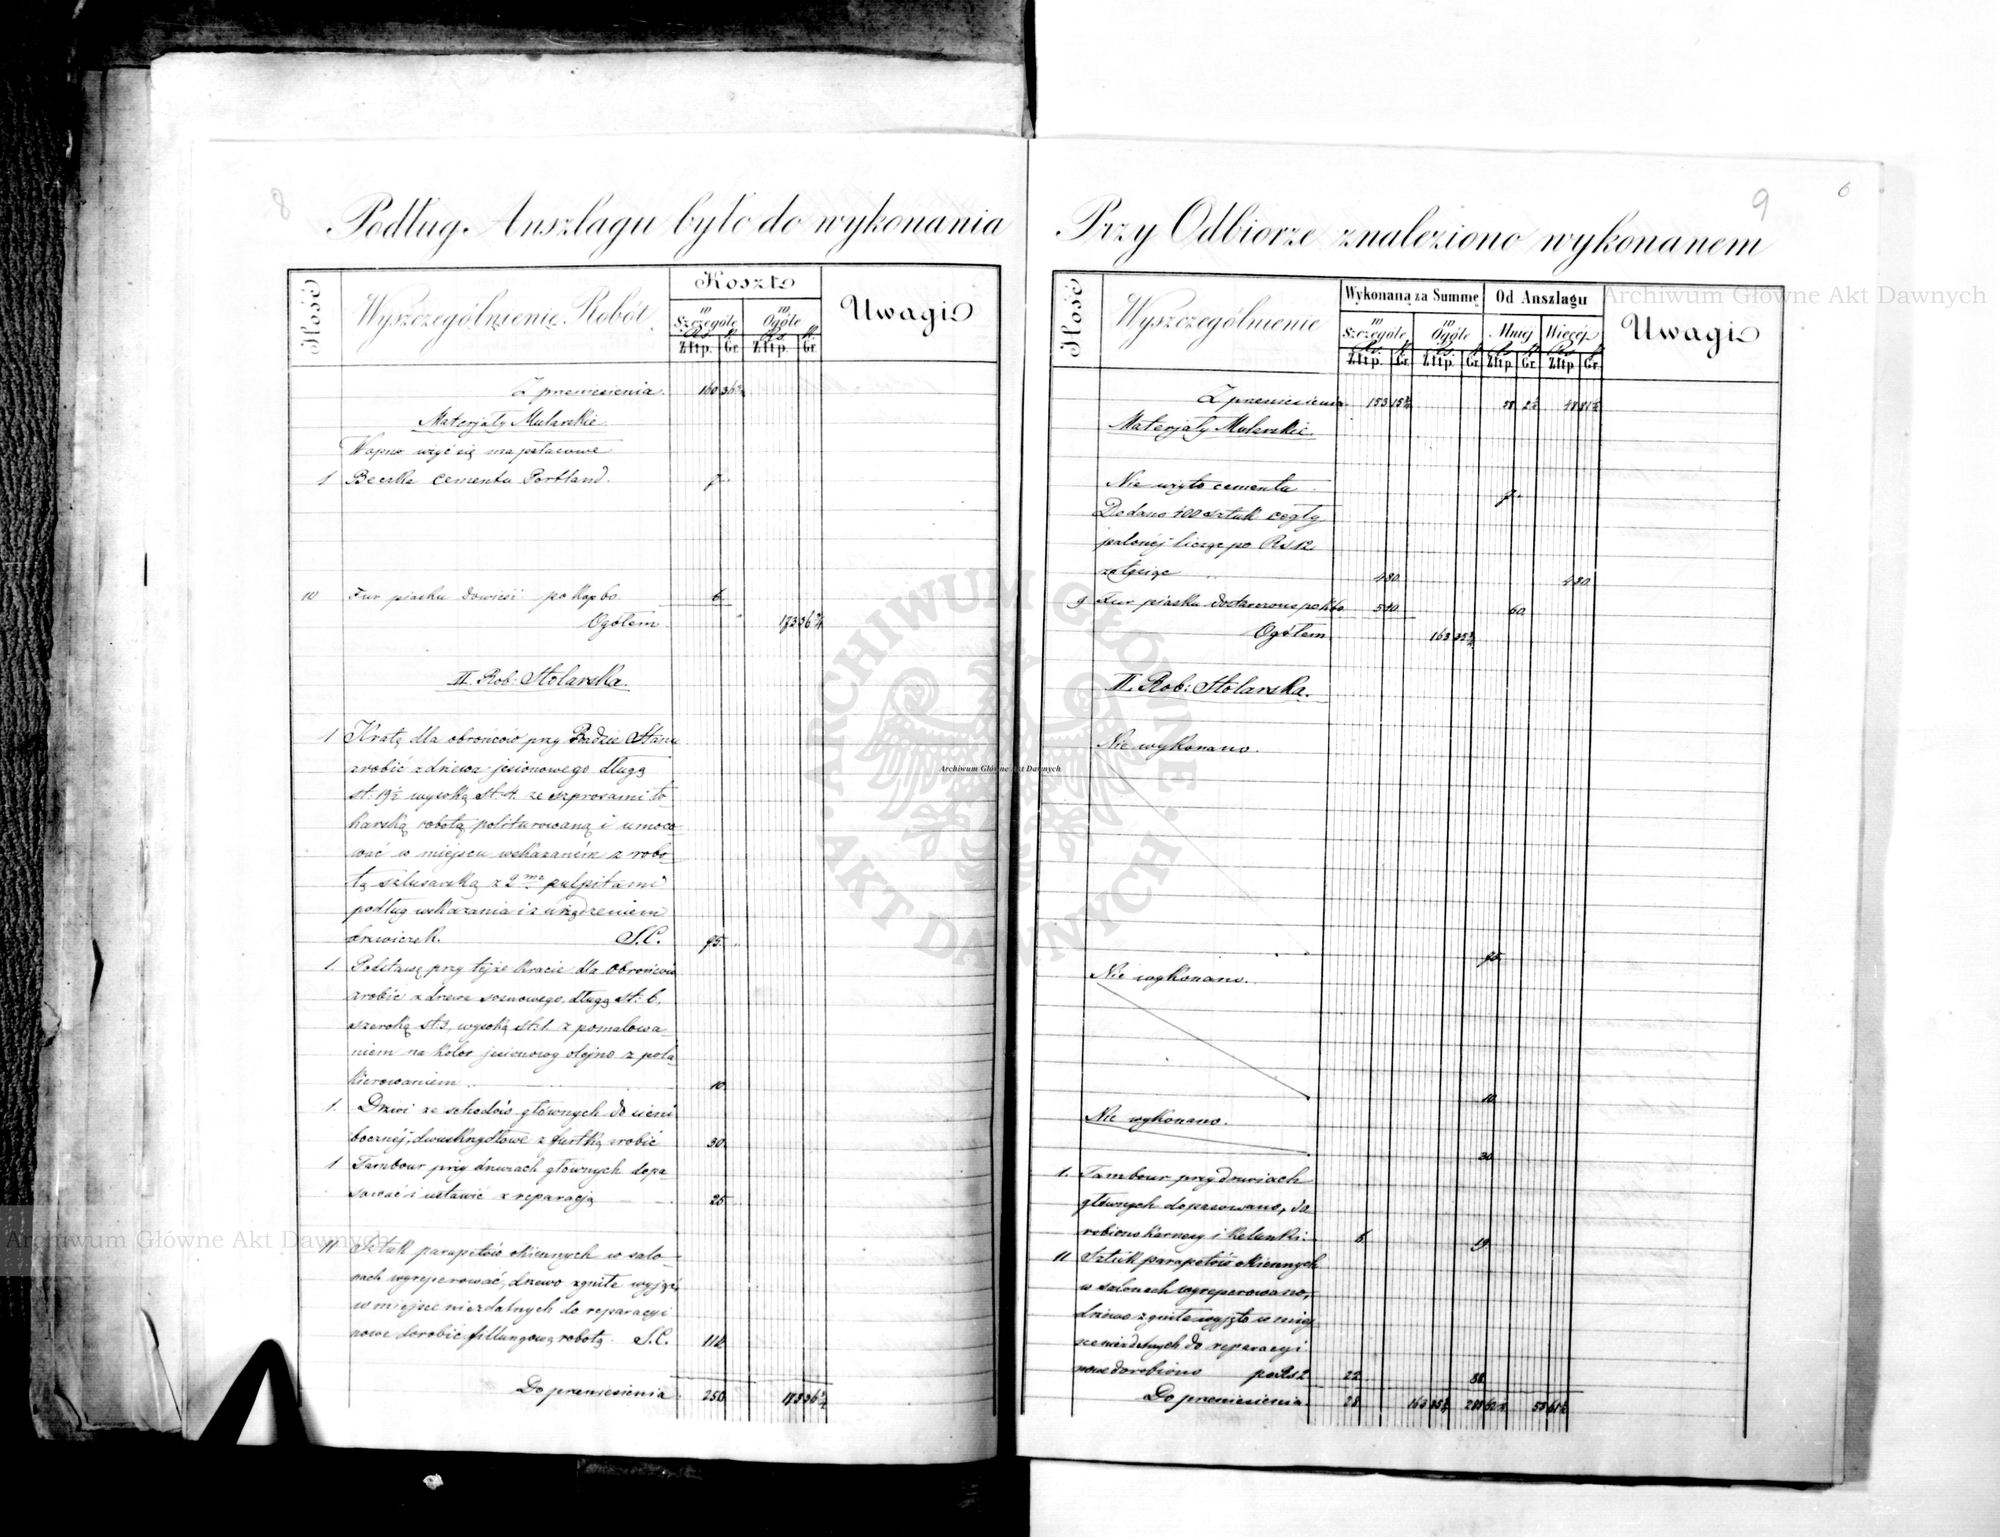 8
Podług Anszlagu było do wykonania
Ilość
Wyszczególnienie Robót
Koszta
Uwagi
w Szczególe
w Ogóle
Złtp. Gr. Złtp. Gr.
Z przeniesienia 160 36
Materjały Mularskie
Wapno użyć się ma placowe
1 Beczka cementu Portland. 7
10 Fur piasku dowieść po kop 60 6
Ogółem 173 36
II. Rob: Stolarska.
1 Kratę dla obrońców przy Radzie Stanu
zrobić z drzewa jesionowego długą
st: 19½ wysoką st. 4. ze szprosami to
karską robotą politurowaną i umoco
wać w miejscu wskazaném z robo-
tą szlusarską z 2ma pulpitami
podług wskazania i z urządzeniem
drzwiczek. S.C. 75
1. Podstawę przy téjże kracie dla obrońców
zrobić z drzewa sosnowego, długą st: 6.
szeroką st. 3, wysoką st: 1. z pomalowa
niem na kolor jesionowy olejno z pola
kierowaniem 10
1. Drzwi ze schodów głównych do sieni
bocznéj, dwuskrzydłowe z furtką zrobić 30
1 Tambour przy drzwiach głównych dopa
sować i ustawić z reparacją 25
11 Sztuk parapetów okiennych w salo-
nach wyreperować, drzewo zgniłe wyjąć,
w miejsce niezdatnych do reparacyi
nowe dorobić fillungową robotą. S.C. 110
Do przeniesienia 250 173 36
9
6
Przy Odbiorze znaleziono wykonanem
Ilość
Wyszczególnienie
Wykonaną za Summę
Od Anszlagu
Uwagi
w Szczególe
w Ogóle
Mniej
Więcej
Złtp. Gr. Złtp. Gr. Złtp. Gr. Złtp. Gr.
Z przeniesienia 153 15 58 2½ 48 81½
Materjały Mularskie.
Nie użyto cementu 7
Dodano 400 sztuk cegły
palonéj licząc po Rs 12
za tysiąc 4 80 4 80
9 Fur piasku dostarczono po k 60 5 40 60
Ogółem 163 35
II. Rob: Stolarska.
Nie wykonano.
75
Nie wykonano.
10
Nie wykonano.
30
1. Tambour przy drzwiach
głównych dopasowano, do
robiono karnesy i kelunki 6 19
11 Sztuk parapetów okiennych
w salonach wyreperowano,
drzewo zgniłe wyjęto w miej
sce niezdatnych do reparacyi
nowe dorobiono po Rs 2 22 88
Do przeniesienia 28 163 35 288 62½ 53 61½
Archiwum Główne Akt Dawnych
Archiwum Główne Akt Dawnych
Archiwum Główne Akt Dawnych
ARCHIWUM GŁÓWNE AKT DAWNYCH